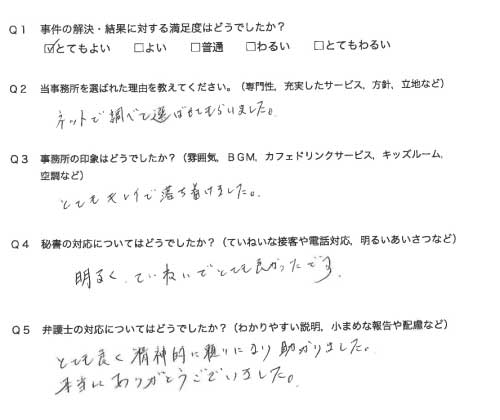 Q1 事件の解決・結果に対する満足度はどうでしたか？
☑とてもよい □よい □普通 □わるい □とてもわるい
Q2 当事務所を選ばれた理由を教えてください。（専門性，充実したサービス，方針，立地など）
ネットで調べて選ばせてもらいました。
Q3 事務所の印象はどうでしたか？（雰囲気，ＢＧＭ，カフェドリンクサービス，キッズルーム，
空調など）
とてもキレイで落ち着けました。
Q4 秘書の対応についてはどうでしたか？（ていねいな接客や電話対応，明るいあいさつなど）
明るく、ていねいでとても良かったです。
Q5 弁護士の対応についてはどうでしたか？（わかりやすい説明，小まめな報告や配慮など）
とても良く精神的に頼りになり助かりました。
本当にありがとうございました。